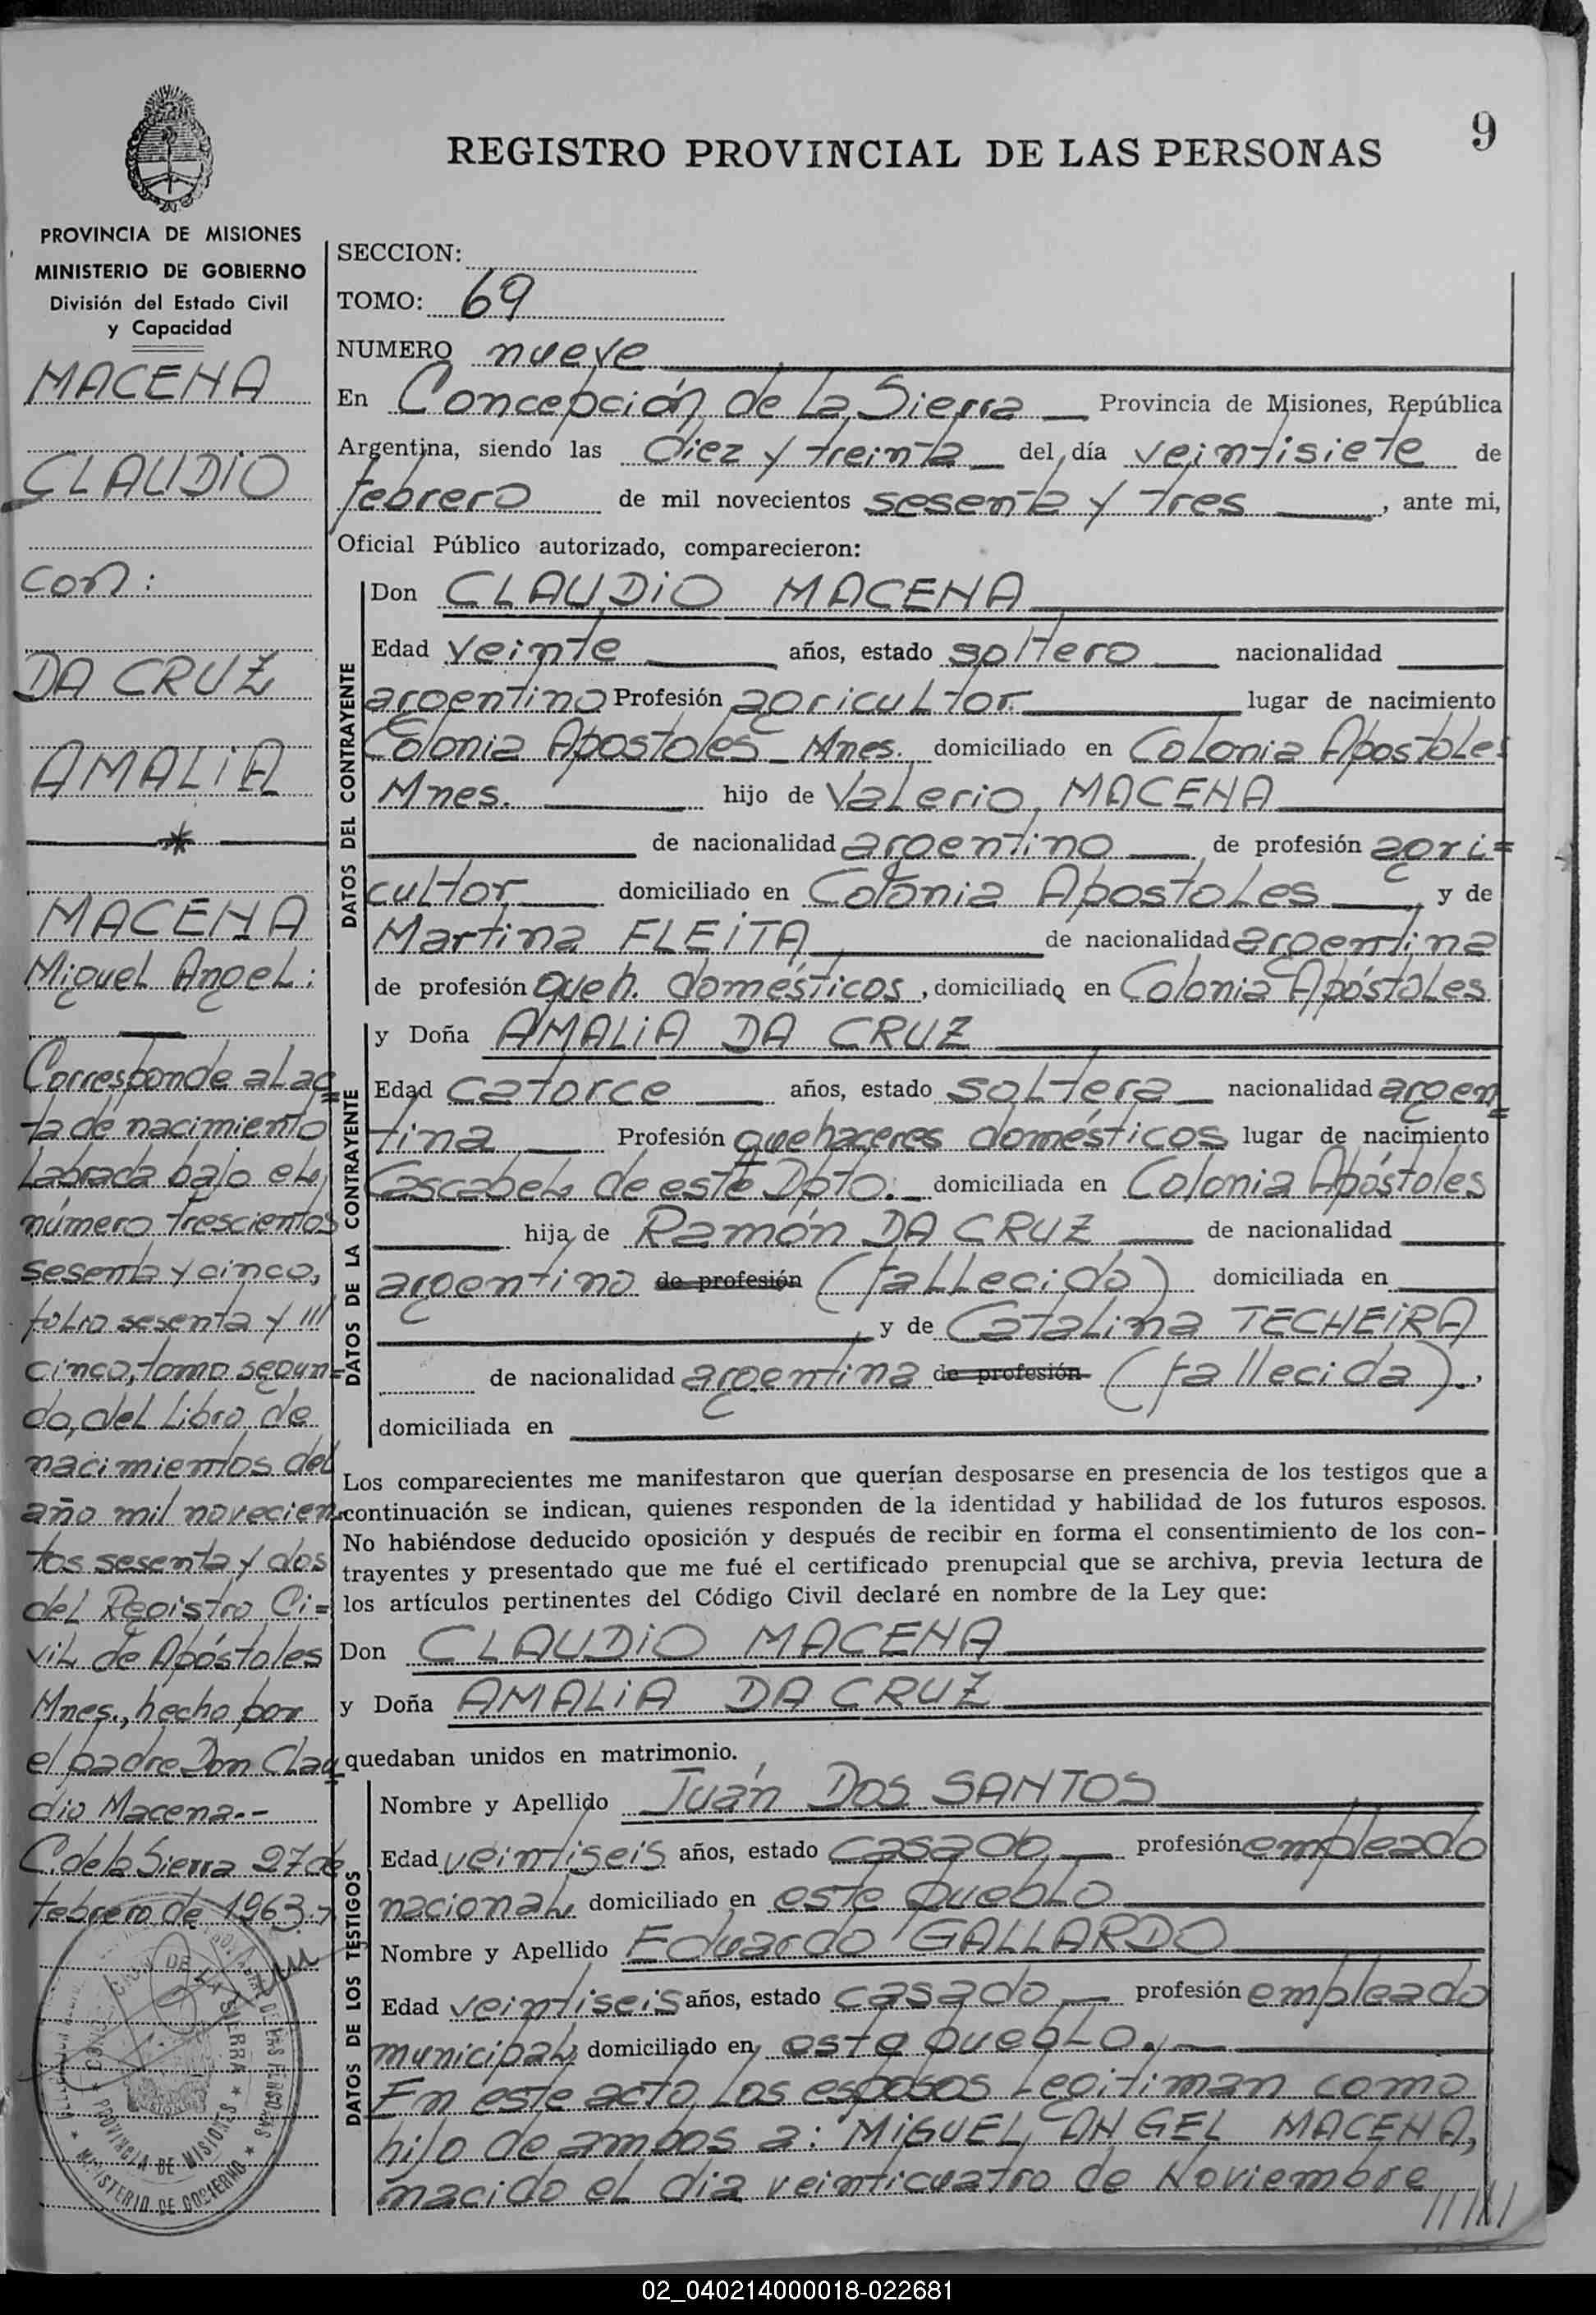 9
REGISTRO PROVINCIAL DE LAS PERSONAS
PROVINCIA DE MISIONES
MINISTERIO DE GOBIERNO
División del Estado Civil
y Capacidad
MACENA
CLAUDIO
con:
DA CRUZ
AMALIA
MACENA
Miguel Angel:
Corresponde al ac=
ta de nacimiento
labrada bajo el
número trescientos
sesenta y cinco,
folio sesenta y ///
cinco, tomo segun=
do, del libro de
nacimientos del
año mil novecien=
tos sesenta y dos
del Registro Ci=
vil de Apóstoles
Mnes., hecho por
el padre Don Clau=
dio Macena.-
C. de la Sierra 27 de
febrero de 1963.-
DE LA SIERRA
PROVINCIA DE MISIONES
MINISTERIO DE GOBIERNO
SECCION:
TOMO: 69
NUMERO nueve
En Concepción de La Sierra Provincia de Misiones, República
Argentina, siendo las diez y treinta del día veintisiete de
febrero de mil novecientos sesenta y tres, ante mi,
Oficial Público autorizado, comparecieron:
DATOS DEL CONTRAYENTE
Don CLAUDIO MACENA
Edad veinte años, estado soltero nacionalidad
argentino Profesión agricultor. lugar de nacimiento
Colonia Apostoles Mnes. domiciliado en Colonia Apostoles
Mnes. hijo de Valerio MACENA
de nacionalidad argentino de profesión agri=
cultor domiciliado en Colonia Apostoles y de
Martina FLEITA de nacionalidad argentina
de profesión queh. domésticos, domiciliado en Colonia Apóstoles
DATOS DE LA CONTRAYENTE
y Doña AMALIA DA CRUZ
Edad catorce años, estado soltera nacionalidad argen=
tina Profesión quehaceres domésticos lugar de nacimiento
Cascabel de este Dpto. domiciliada en Colonia Apóstoles
hija de Ramón DA CRUZ de nacionalidad
argentino de profesión (fallecido) domiciliada en
y de Catalina TECHEIRA
de nacionalidad argentina de profesión (fallecida).,
domiciliada en
Los comparecientes me manifestaron que querían desposarse en presencia de los testigos que a
continuación se indican, quienes responden de la identidad y habilidad de los futuros esposos.
No habiéndose deducido oposición y después de recibir en forma el consentimiento de los con-
trayentes y presentado que me fué el certificado prenupcial que se archiva, previa lectura de
los artículos pertinentes del Código Civil declaré en nombre de la Ley que:
Don CLAUDIO MACENA
y Doña AMALIA DA CRUZ
quedaban unidos en matrimonio.
DATOS DE LOS TESTIGOS
Nombre y Apellido Juán DOS SANTOS
Edad veintiseis años, estado casado profesión empleado
nacional domiciliado en este pueblo
Nombre y Apellido Eduardo GALLARDO
Edad veintiseis años, estado casado profesión empleado
municipal domiciliado en este pueblo.
En este acto los esposos legitiman como
hijo de ambos a: MIGUEL ANGEL MACENA,
nacido el día veinticuatro de Noviembre
//////
02_040214000018-022681